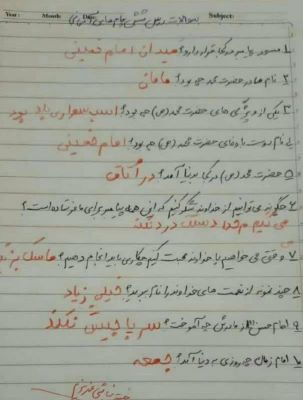 Year: Month: Date: Subject:
سوالات درس شش پیام های آسمانی
۱ مسجد پیامبر در کجا قرار دارد؟ میدان امام خمینی
۲ نام مادر حضرت محمد چه بود؟ مامان
۳ یکی از ویژگی های حضرت محمد (ص) چه بود؟ اسب سواری بلد بود
۴ نام دوست بابای حضرت محمد (ص) چه بود؟ امام خمینی
۵ حضرت محمد (ص) در کجا به دنیا آمد؟ در اتاق
۶ چگونه می توانیم از خداوند تشکر کنیم که این همه پیامبر برای ما فرستاده است؟
می گیم مرد دستت درد نکنه
۷ وقتی می خواهیم با خداوند صحبت کنیم چکاری باید انجام دهیم؟ ماسک بزنیم
۸ چند نمونه از نعمت های خداوند را نام ببرید؟ خیلی زیاد
۹ امام حسن از مادرش چه آموخت؟ سر پا جیش نکند
۱۰ امام زمان چه روزی به دنیا آمد؟ جمعه